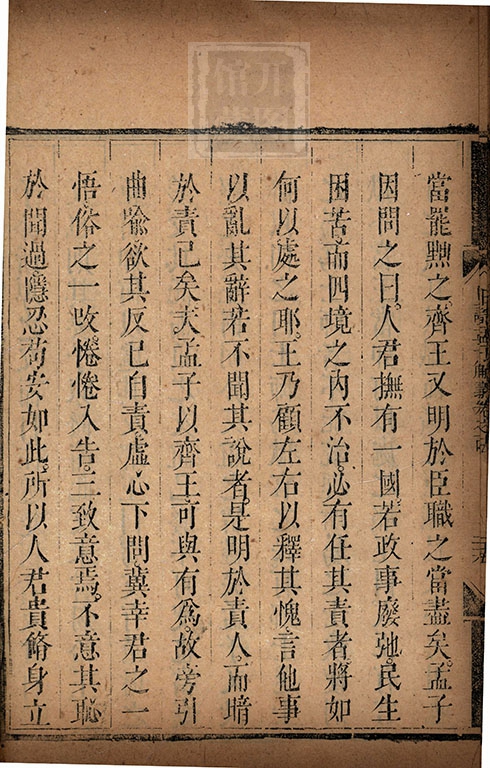 當罷黜之齊王又明於臣職之當盡矣孟子
因問之曰人君撫有一國若政事廢弛民生
困苦而四境之內不治必有任其責者將如
何以處之耶王乃顧左右以釋其愧言他事
以亂其辭若不聞其說者是明於責人而暗
於責已矣夫孟子以齊王可與有爲故旁引
曲喻欲其反已自責虛心下問冀幸君之一
悟俗之一改惓惓入告三致意焉不意其恥
於聞過隱忍苟安如此所以人君貴脩身立